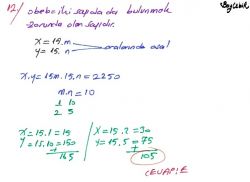 12/ obeb iki sayıda da bulunmak
zorunda olan sayıdır.
X=15.m
Y=15.n
aralarında asal
X.Y=15m.15.n=2250
m.n=10
1 10
2 5
X=15.1=15
Y=15.10=150
165
X=15.2=30
Y=15.5=75
+
105
CEVAP:E